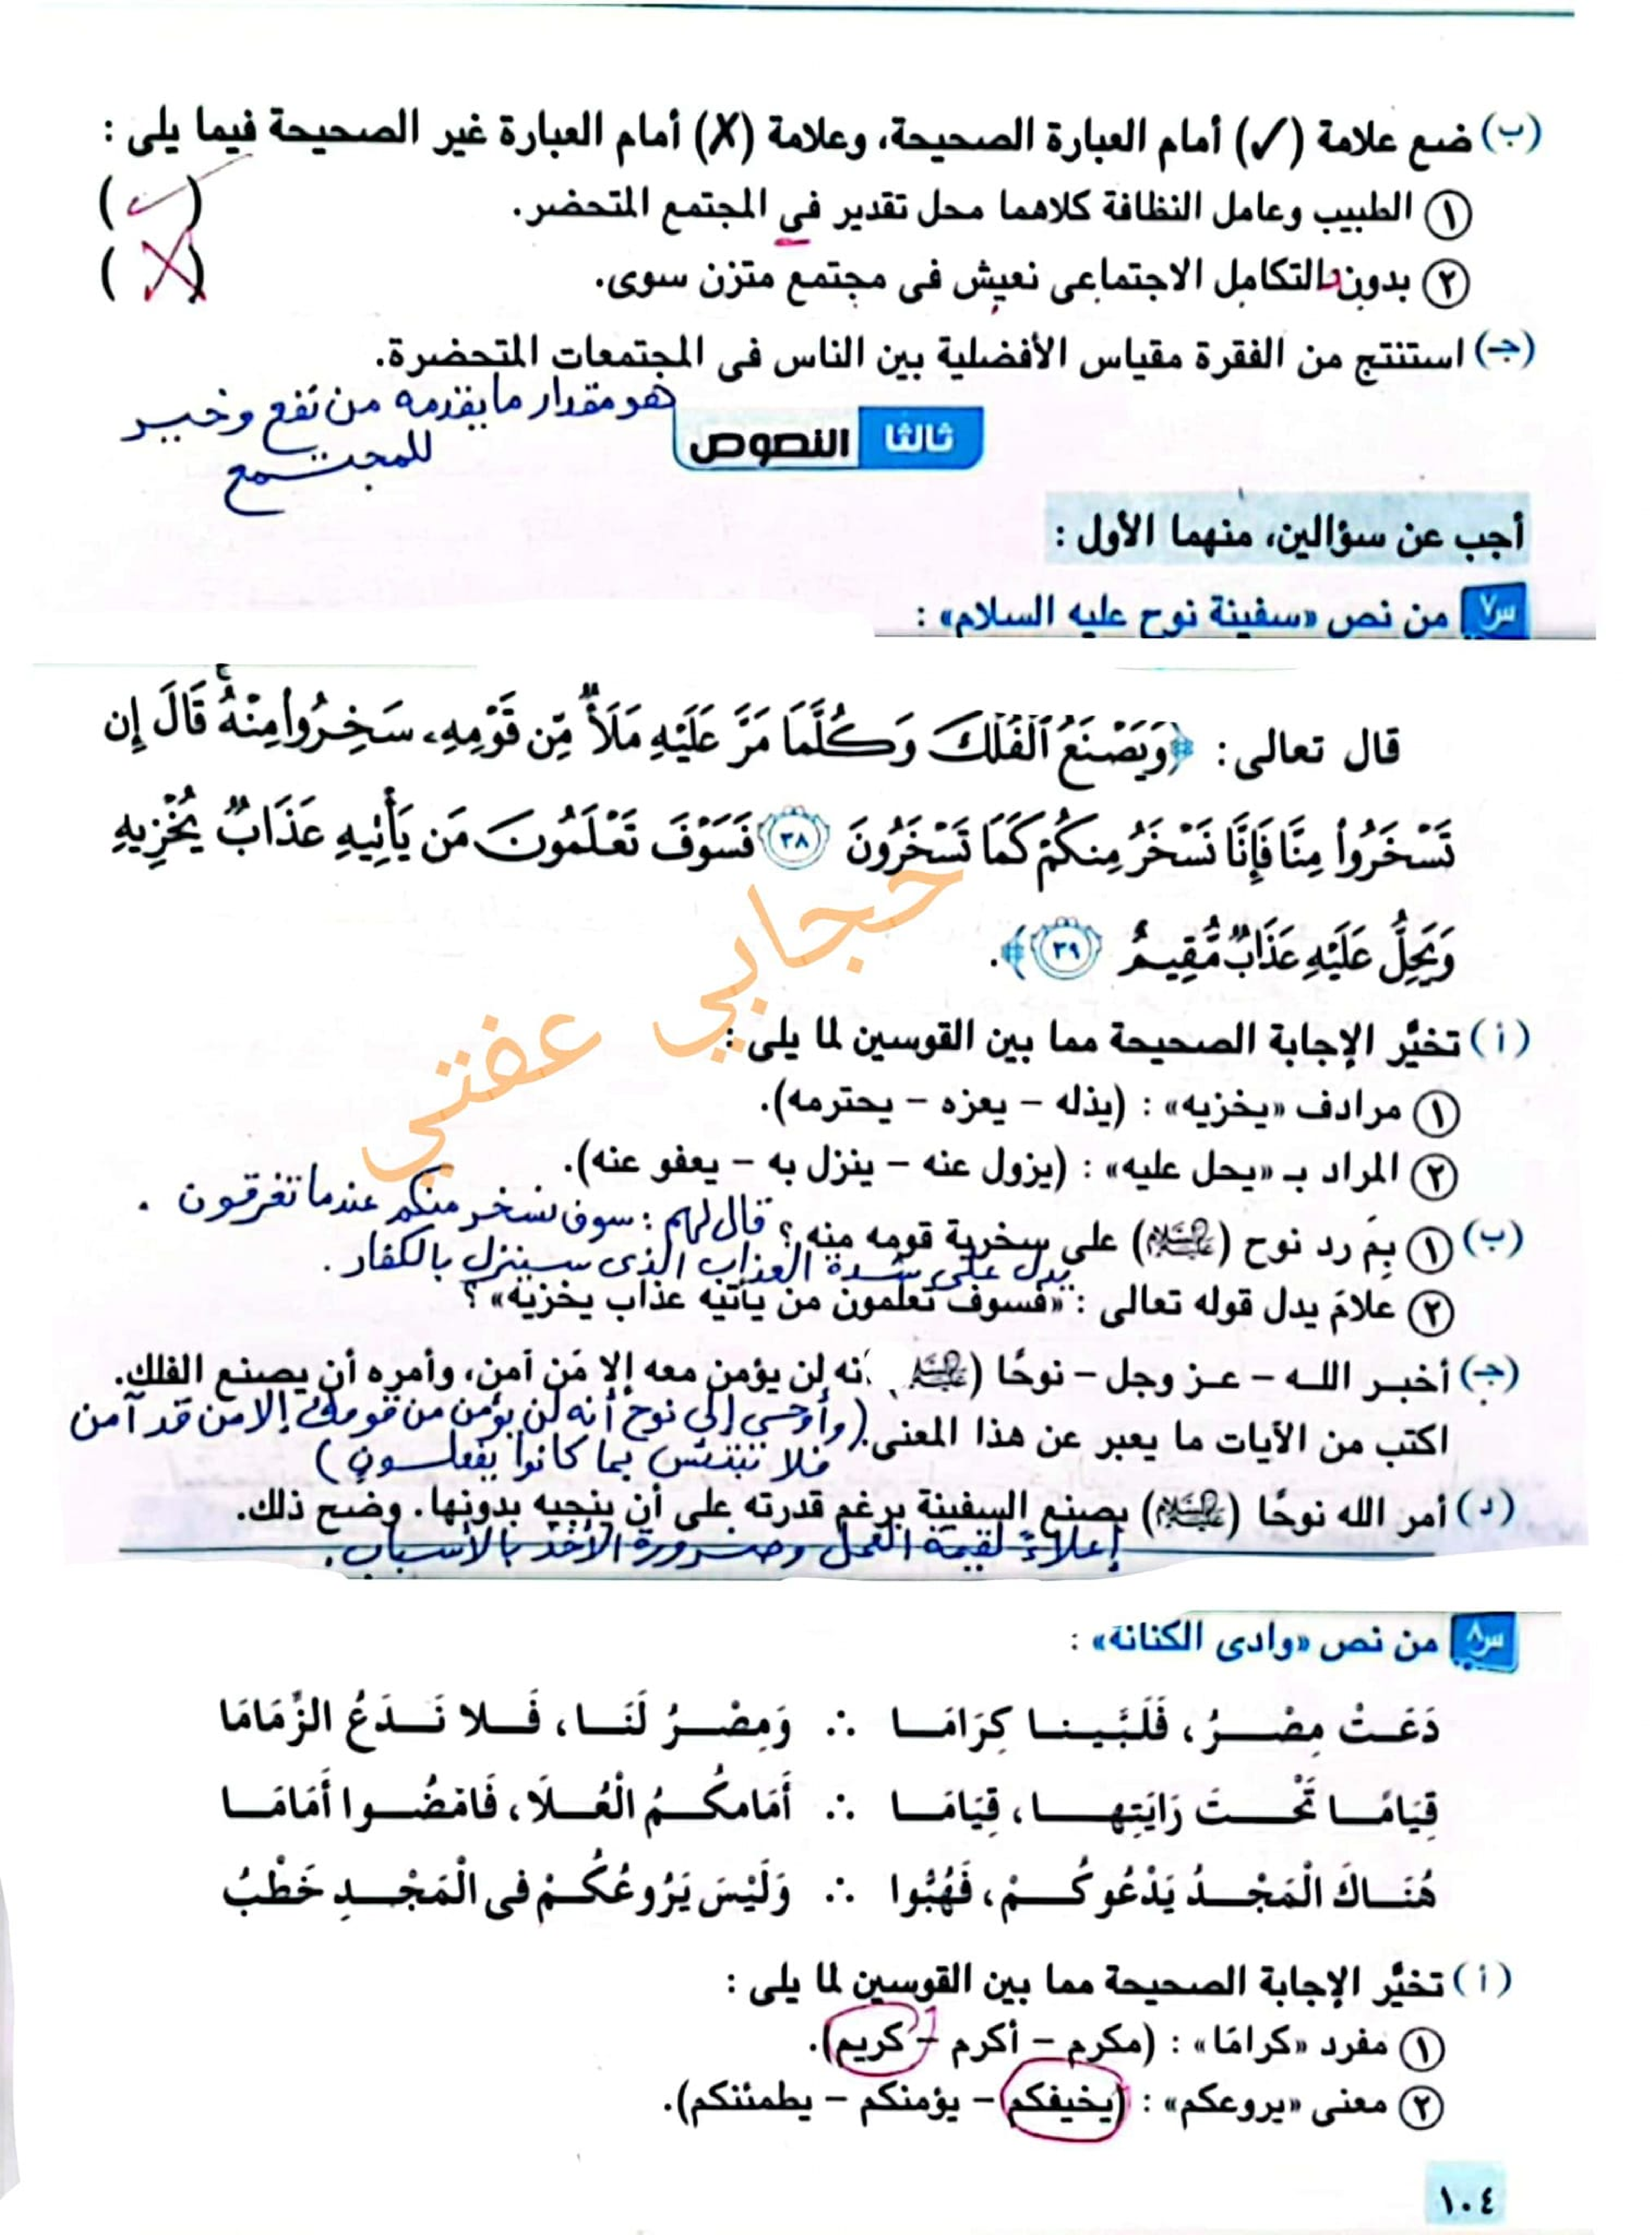 (ب) ضع علامة (✓) أمام العبارة الصحيحة، وعلامة (✗) أمام العبارة غير الصحيحة فيما يلى :
١ الطبيب وعامل النظافة كلاهما محل تقدير في المجتمع المتحضر. (✓)
٢ بدون التكامل الاجتماعى نعيش فى مجتمع متزن سوى. (✗)
(جـ) استنتج من الفقرة مقياس الأفضلية بين الناس فى المجتمعات المتحضرة.
هو مقدار ما يقدمه من نفع وخير
للمجتمع
ثالثا النصوص
أجب عن سؤالين، منهما الأول :
س٧ من نص «سفينة نوح عليه السلام» :
قال تعالى: ﴿وَيَصْنَعُ ٱلْفُلْكَ وَكُلَّمَا مَرَّ عَلَيْهِ مَلَأٌ مِّن قَوْمِهِۦ سَخِرُوا۟ مِنْهُ ۚ قَالَ إِن
تَسْخَرُوا۟ مِنَّا فَإِنَّا نَسْخَرُ مِنكُمْ كَمَا تَسْخَرُونَ ٣٨ فَسَوْفَ تَعْلَمُونَ مَن يَأْتِيهِ عَذَابٌ يُخْزِيهِ
وَيَحِلُّ عَلَيْهِ عَذَابٌ مُّقِيمٌ ٣٩﴾.
حجابي عفتي
(أ) تخيَّر الإجابة الصحيحة مما بين القوسين لما يلى :
١ مرادف «يخزيه» : (يذله – يعزه – يحترمه).
٢ المراد بـ «يحل عليه» : (يزول عنه – ينزل به – يعفو عنه).
(ب) ١ بِمَ رد نوح (عليه السلام) على سخرية قومه منه ؟ قال لهم : سوف نسخر منكم عندما تغرقون .
يدل على شدة العذاب الذى سينزل بالكفار .
٢ علامَ يدل قوله تعالى : «فسوف تعلمون من يأتيه عذاب يخزيه» ؟
(جـ) أخبر الله – عز وجل – نوحًا (عليه السلام) أنه لن يؤمن معه إلا مَن آمن، وأمره أن يصنع الفلك.
اكتب من الآيات ما يعبر عن هذا المعنى. (وأوحى إلى نوح أنه لن يؤمن من قومك إلا من قد آمن
فلا تبتئس بما كانوا يفعلون)
(د) أمر الله نوحًا (عليه السلام) بصنع السفينة برغم قدرته على أن ينجيه بدونها. وضح ذلك.
إعلاءً لقيمة العمل وضرورة الأخذ بالأسباب .
س٨ من نص «وادى الكنانة» :
دَعَتْ مِصْرُ، فَلَبَّينا كِرَامَا ∴ وَمِصْرُ لَنَا، فَلا نَدَعُ الزِّمَامَا
قِيَامًا تَحْتَ رَايَتِها، قِيَامَا ∴ أَمَامكُمُ الْعُلَا، فَامْضُوا أَمَامَا
هُنَاكَ الْمَجْدُ يَدْعُوكُمْ، فَهُبُّوا ∴ وَلَيْسَ يَرُوعُكُمْ فى الْمَجْدِ خَطْبُ
(أ) تخيَّر الإجابة الصحيحة مما بين القوسين لما يلى :
١ مفرد «كرامًا» : (مكرم – أكرم – كريم).
٢ معنى «يروعكم» : (يخيفكم – يؤمنكم – يطمئنكم).
١٠٤